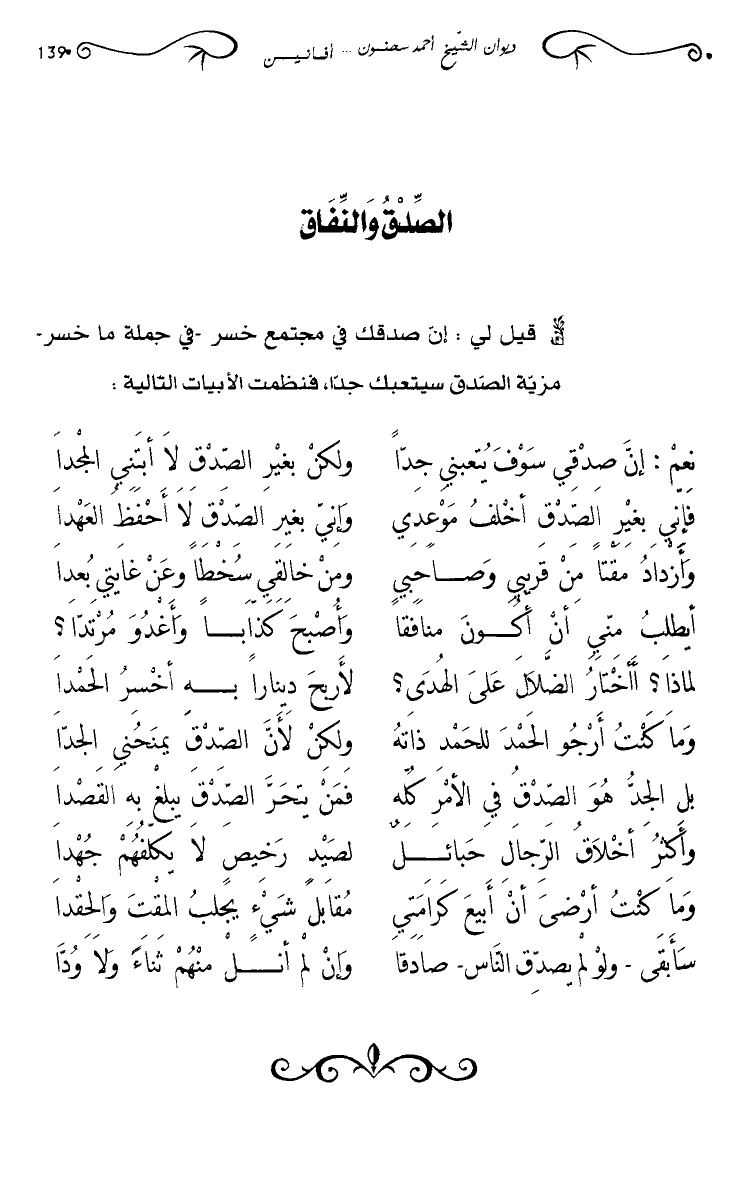 ديوان الشّيخ أحمد سحنون ... أفـانيـــن 139
الصِّدْقُ وَالنِّفَاق
قيل لي : إنّ صدقك في مجتمع خسر -في جملة ما خسر-
مزيّة الصّدق سيتعبك جدّا، فنظمت الأبيات التالية :
نعمْ : إنَّ صِدْقي سَوْفَ يُتعبني جدًّا ولكنْ بغَيْرِ الصِّدْقِ لاَ أبتَنِي المْجدا
فإنّي بغَيْرِ الصِّدْق أخْلفُ مَوْعدِي وَإنيّ بغَيرِ الصِّدْق لاَ أَحْفَظُ العَهْدا
وَأَزْدادُ مقْتاً مِنْ قريبِي وَصَـــاحبِي ومِنْ خالقِي سُخْطاً وعَنْ غايتي بُعدا
أيطلبُ منّي أنْ أَكُـــونَ منافقاً وَأُصْبحَ كَذّابـــاً وَأَغْدُوَ مُرْتدّا ؟
لماذا ؟ أَأَخْتارُ الضَّلالَ عَلىَ الهُدَى ؟ لأربحَ دِيناراً بـــهِ أخْسرُ الحَمْدا
وَما كنْتُ أرْجُو الحَمْدَ للحَمْد ذاتهُ ولكنْ لأَنَّ الصّدْقَ يمنَحُني الجدّا
بلِ الجدُّ هُوَ الصّدْقُ في الأمْرِ كُلّه فَمَنْ يتحَرَّ الصِّدْقَ يبلغْ بهِ القَصْدا
وأكثرُ أخْلاقُ الرِّجالِ حَبائـــلٌ لصَيْدٍ رَخِيصٍ لا يكلّفُهُمْ جُهْدا
وَما كنْتُ أرْضىَ أنْ أَبيعَ كَرَامَتِي مُقابلَ شَيْءٍ يجلبُ المقْتَ وَالحِقْدا
سَأَبقَى - ولوْ لمْ يصدّق النّاس- صادقا وَإنْ لمْ أنـــلْ منْهُمْ ثَناءً وَلاَ وُدَّا